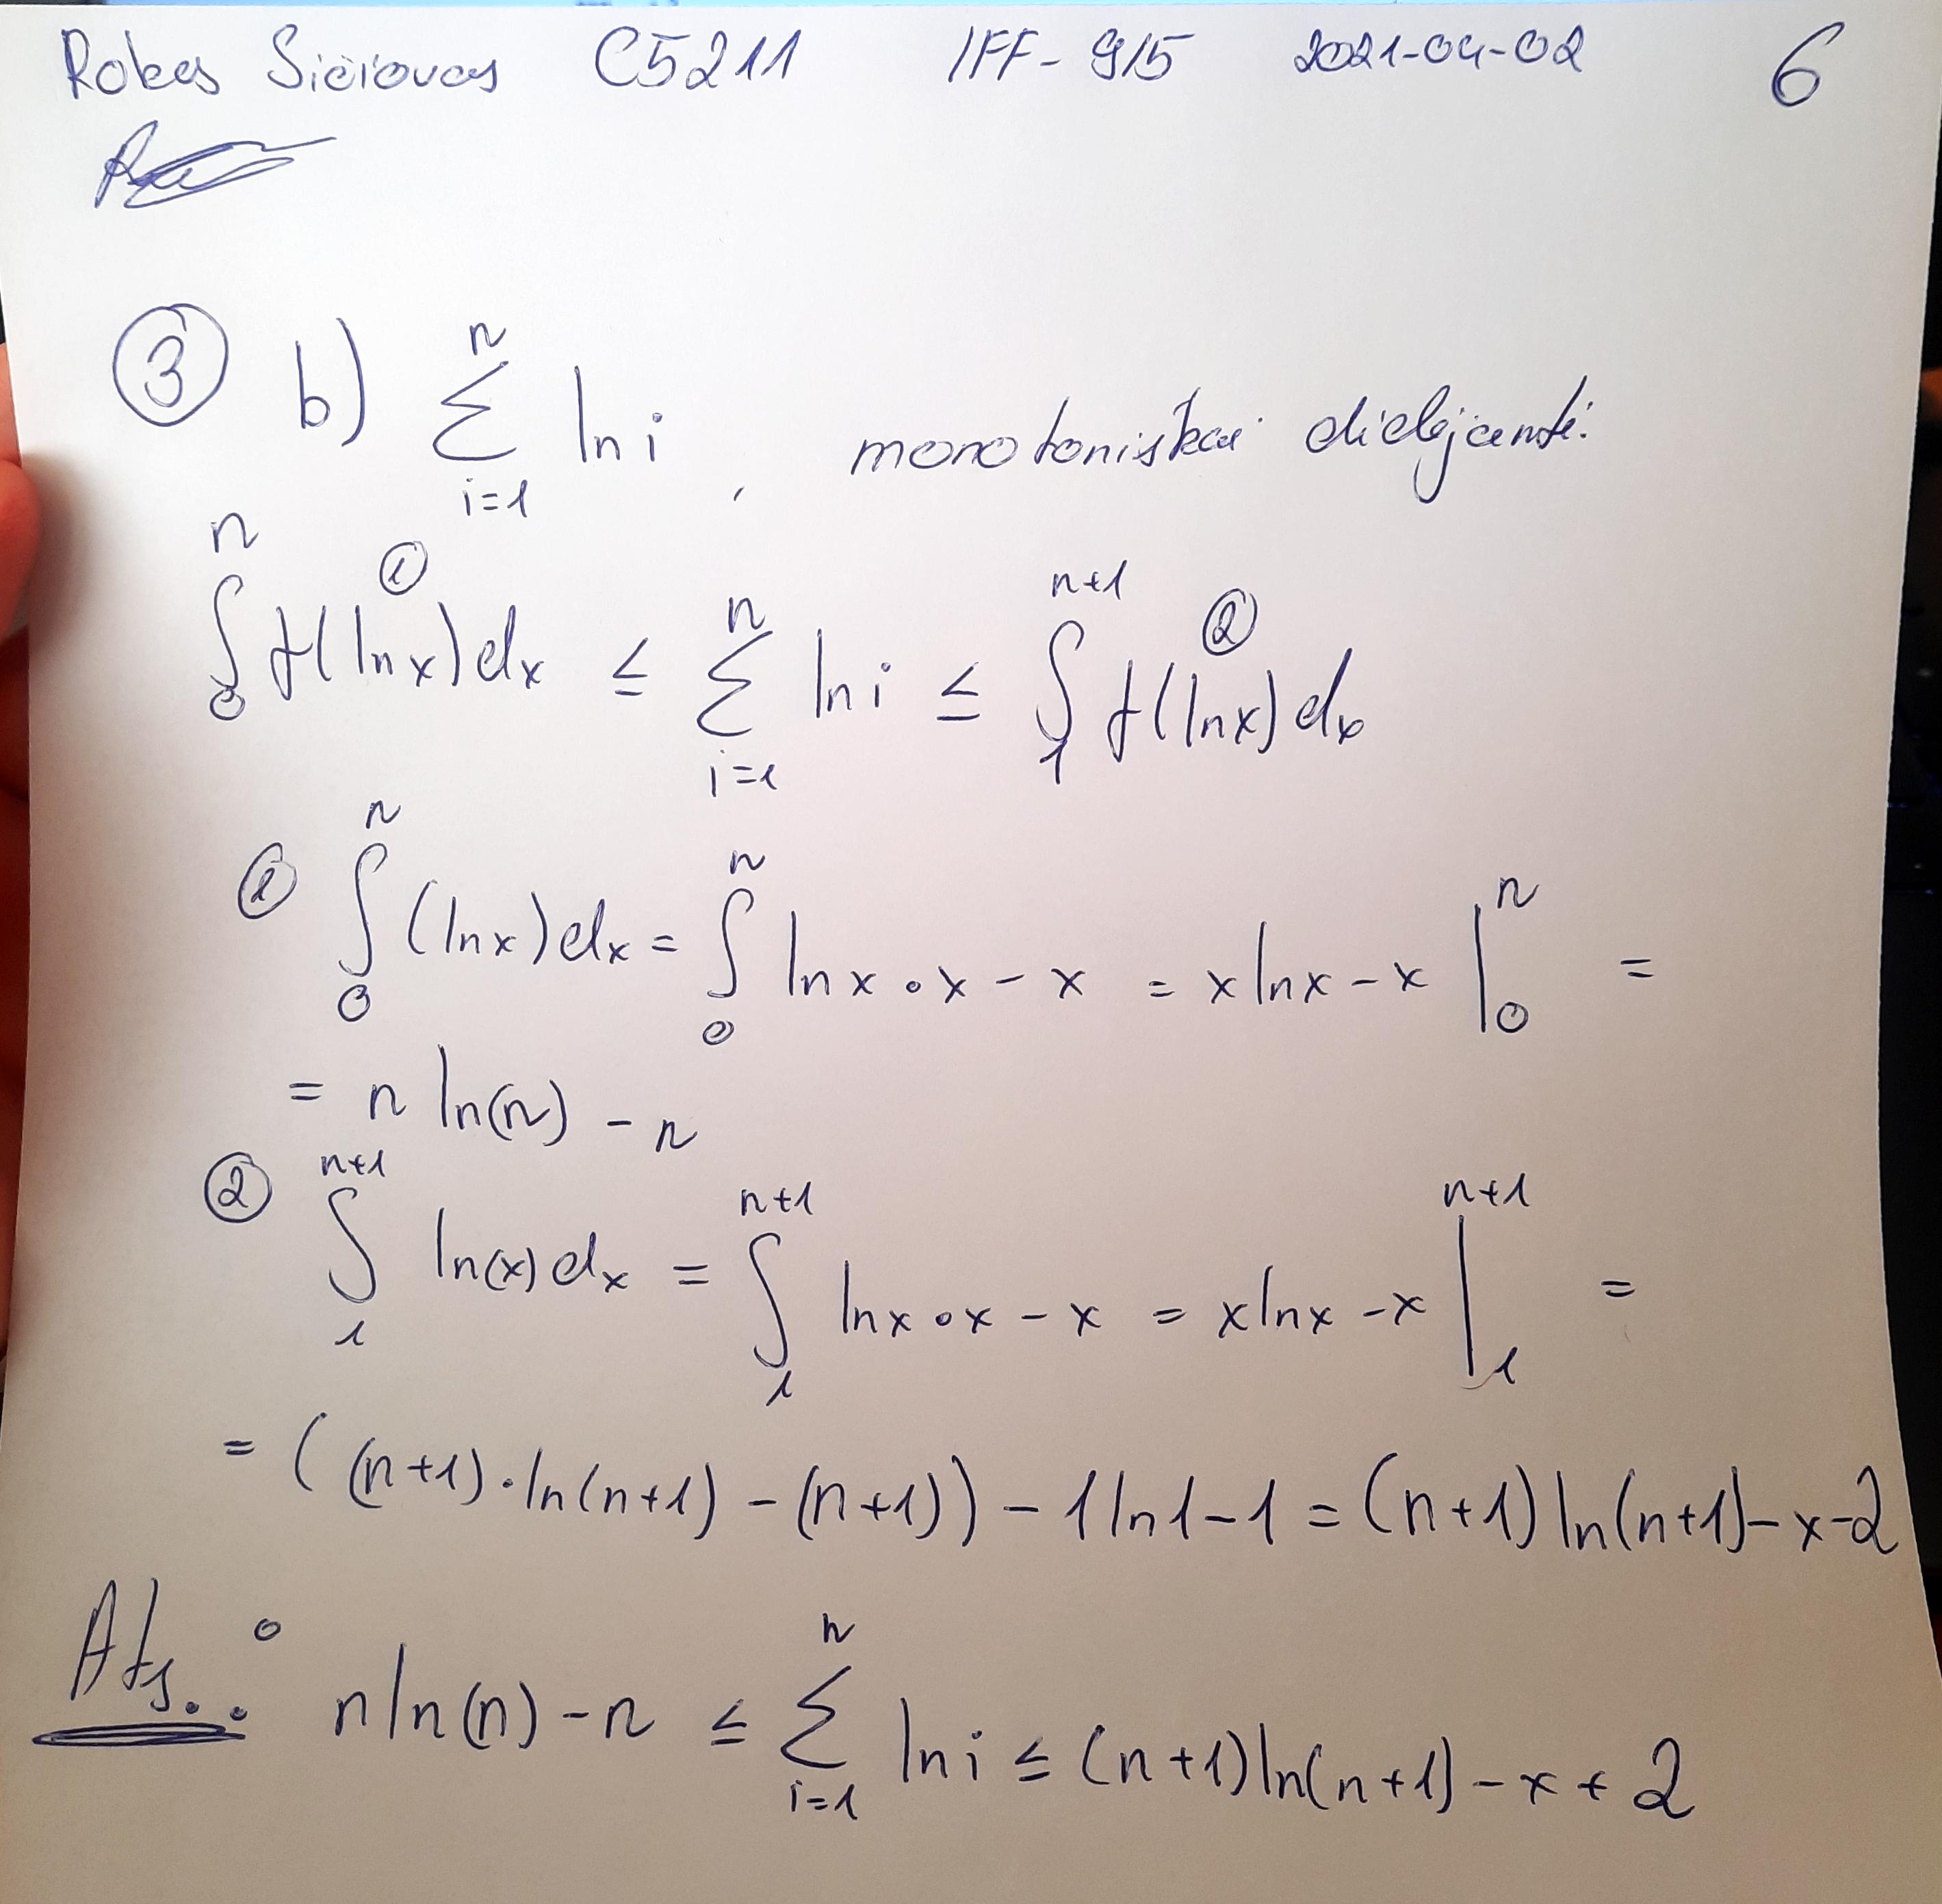 Rokas Sičiovas C5211 IFF-9/5 2021-04-02 6
③ b) ∑_{i=1}^{n} ln i, monotoniškai didėjanti.
∫_0^n f(ln x)dx ① ≤ ∑_{i=1}^{n} ln i ≤ ∫_1^{n+1} f(ln x)dx ②
① ∫_0^n (ln x)dx = ∫_0^n ln x • x - x = x ln x - x |_0^n =
= n ln(n) - n
② ∫_1^{n+1} ln(x)dx = ∫_1^{n+1} ln x • x - x = x ln x - x |_1^{n+1} =
= ((n+1)·ln(n+1) - (n+1)) - 1 ln 1 - 1 = (n+1) ln(n+1) - x - 2
Ats.: n ln(n) - n ≤ ∑_{i=1}^{n} ln i ≤ (n+1) ln(n+1) - x + 2